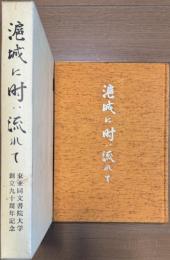 滬城に時は流れて
東亜同文書院大学
創立九十周年記念
滬城に時は流れて